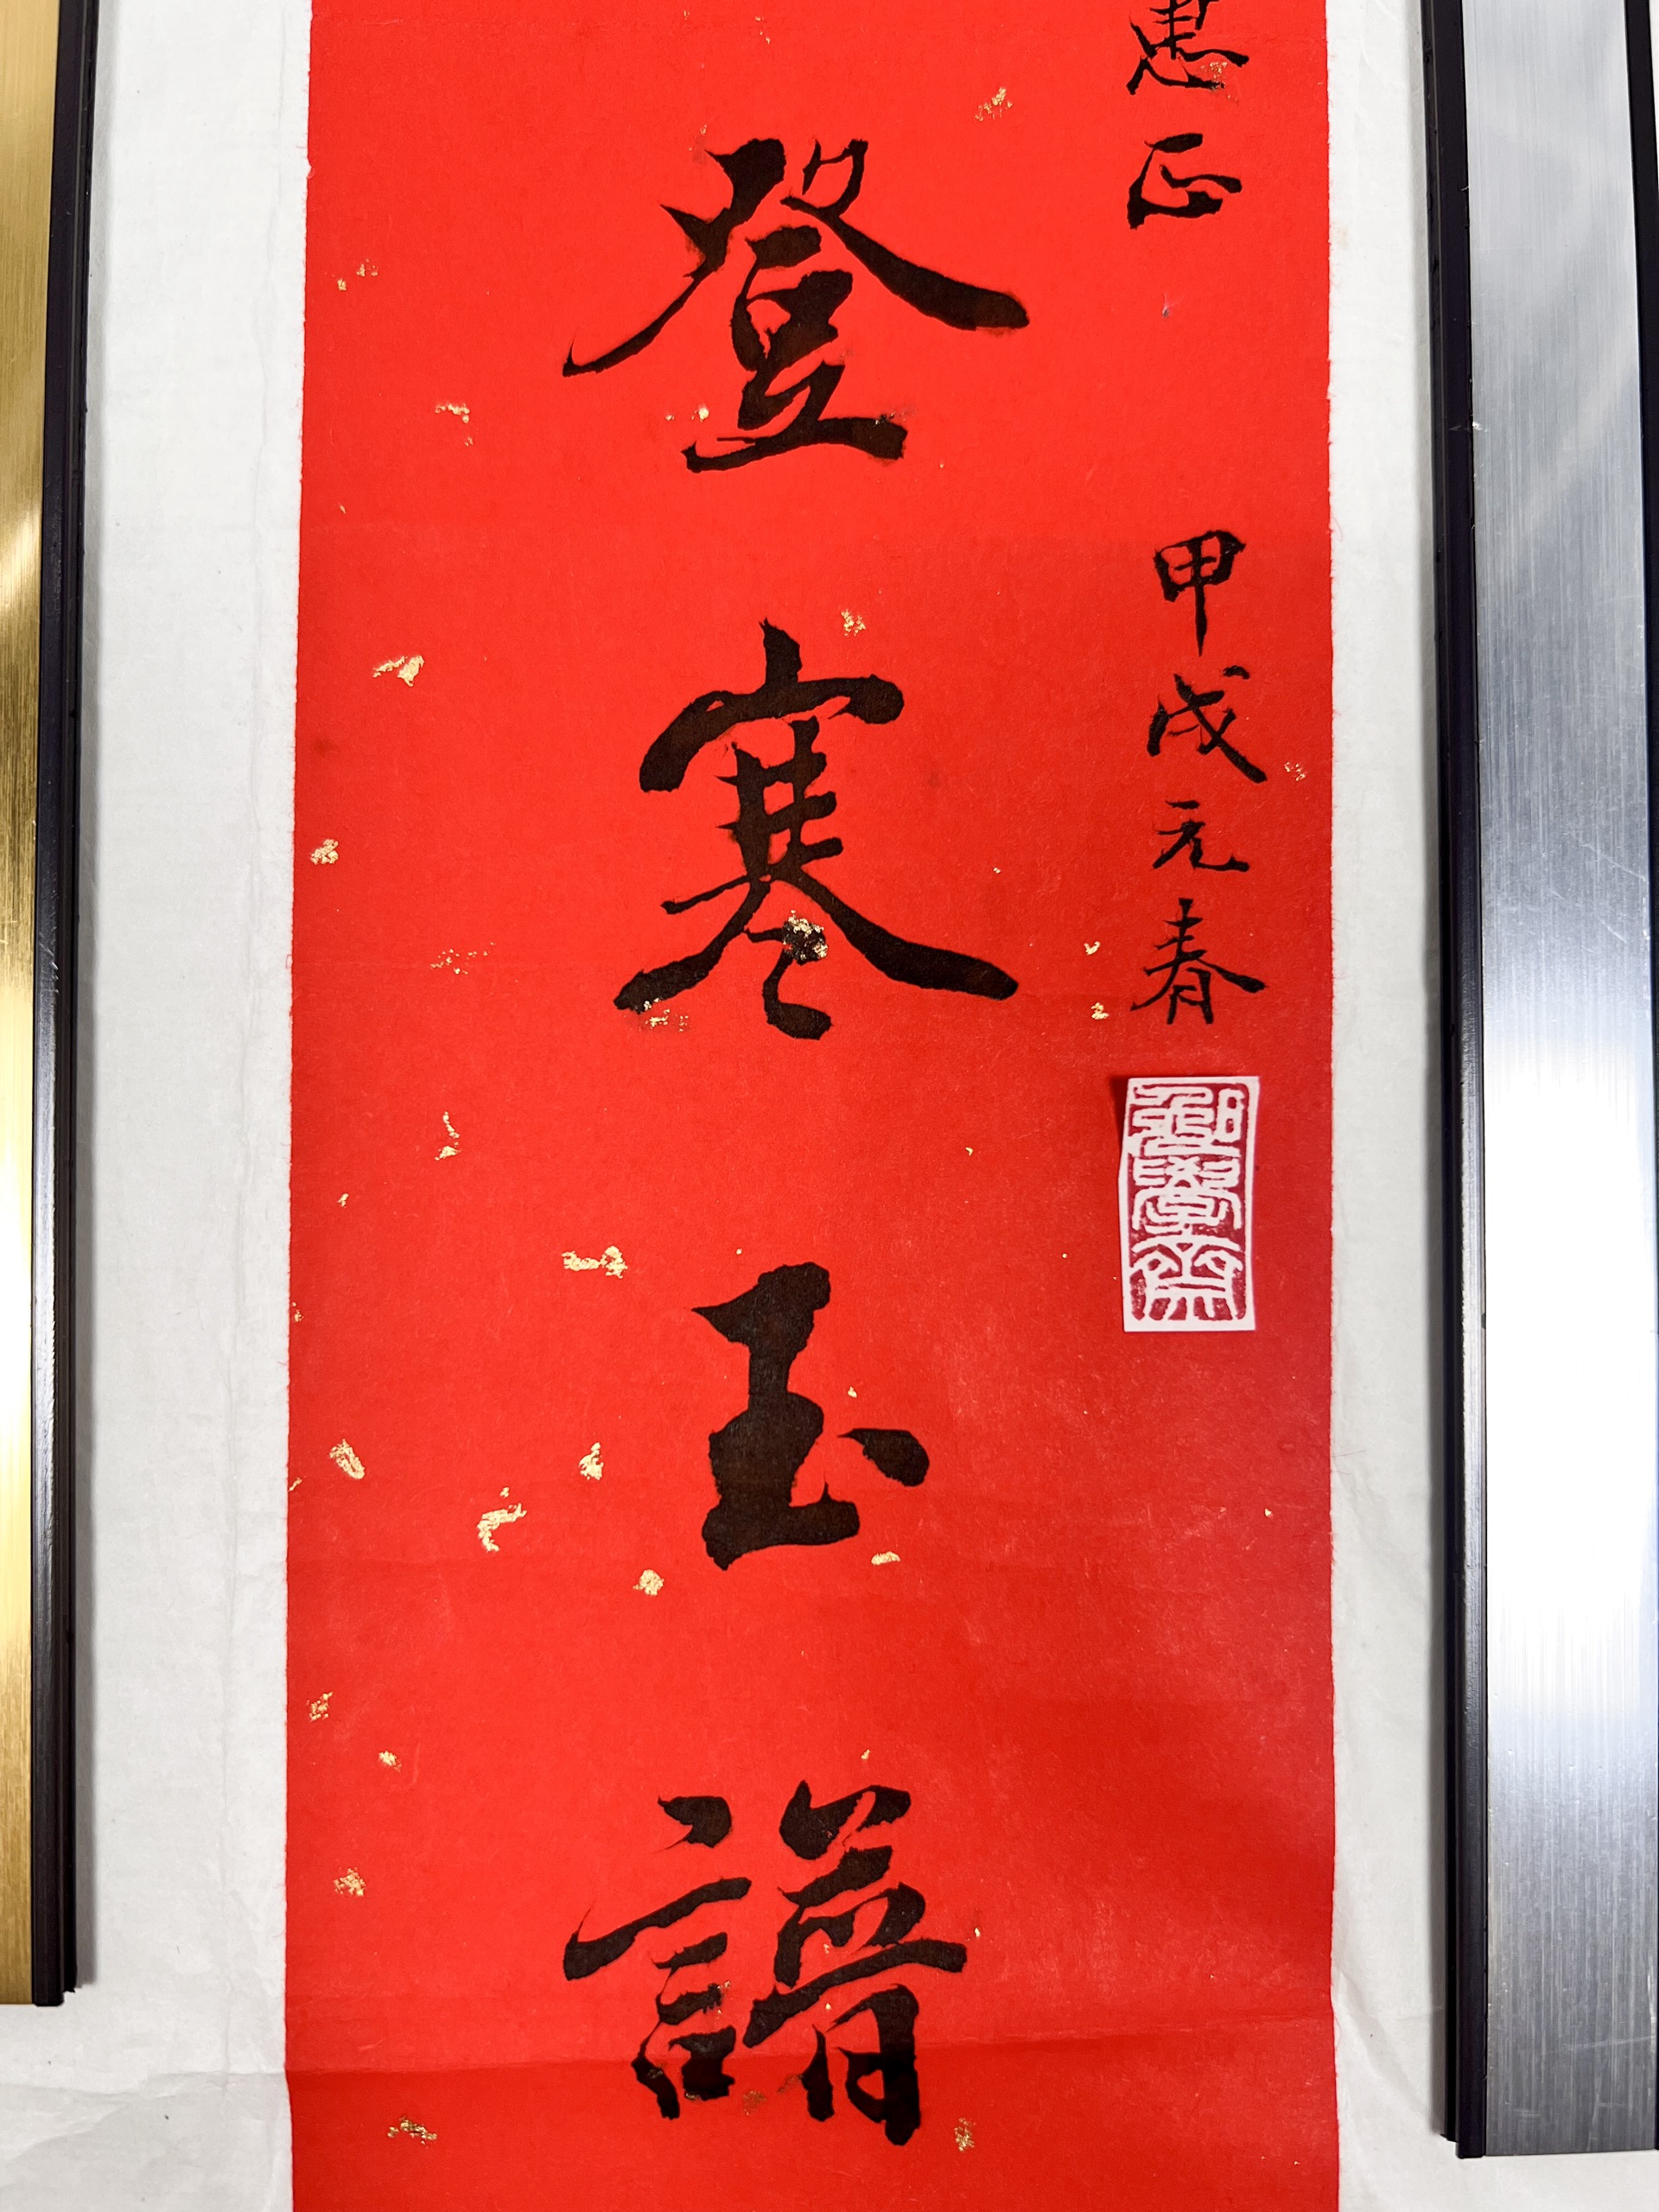 惠正 甲戌元春
學齋
登寒玉譜